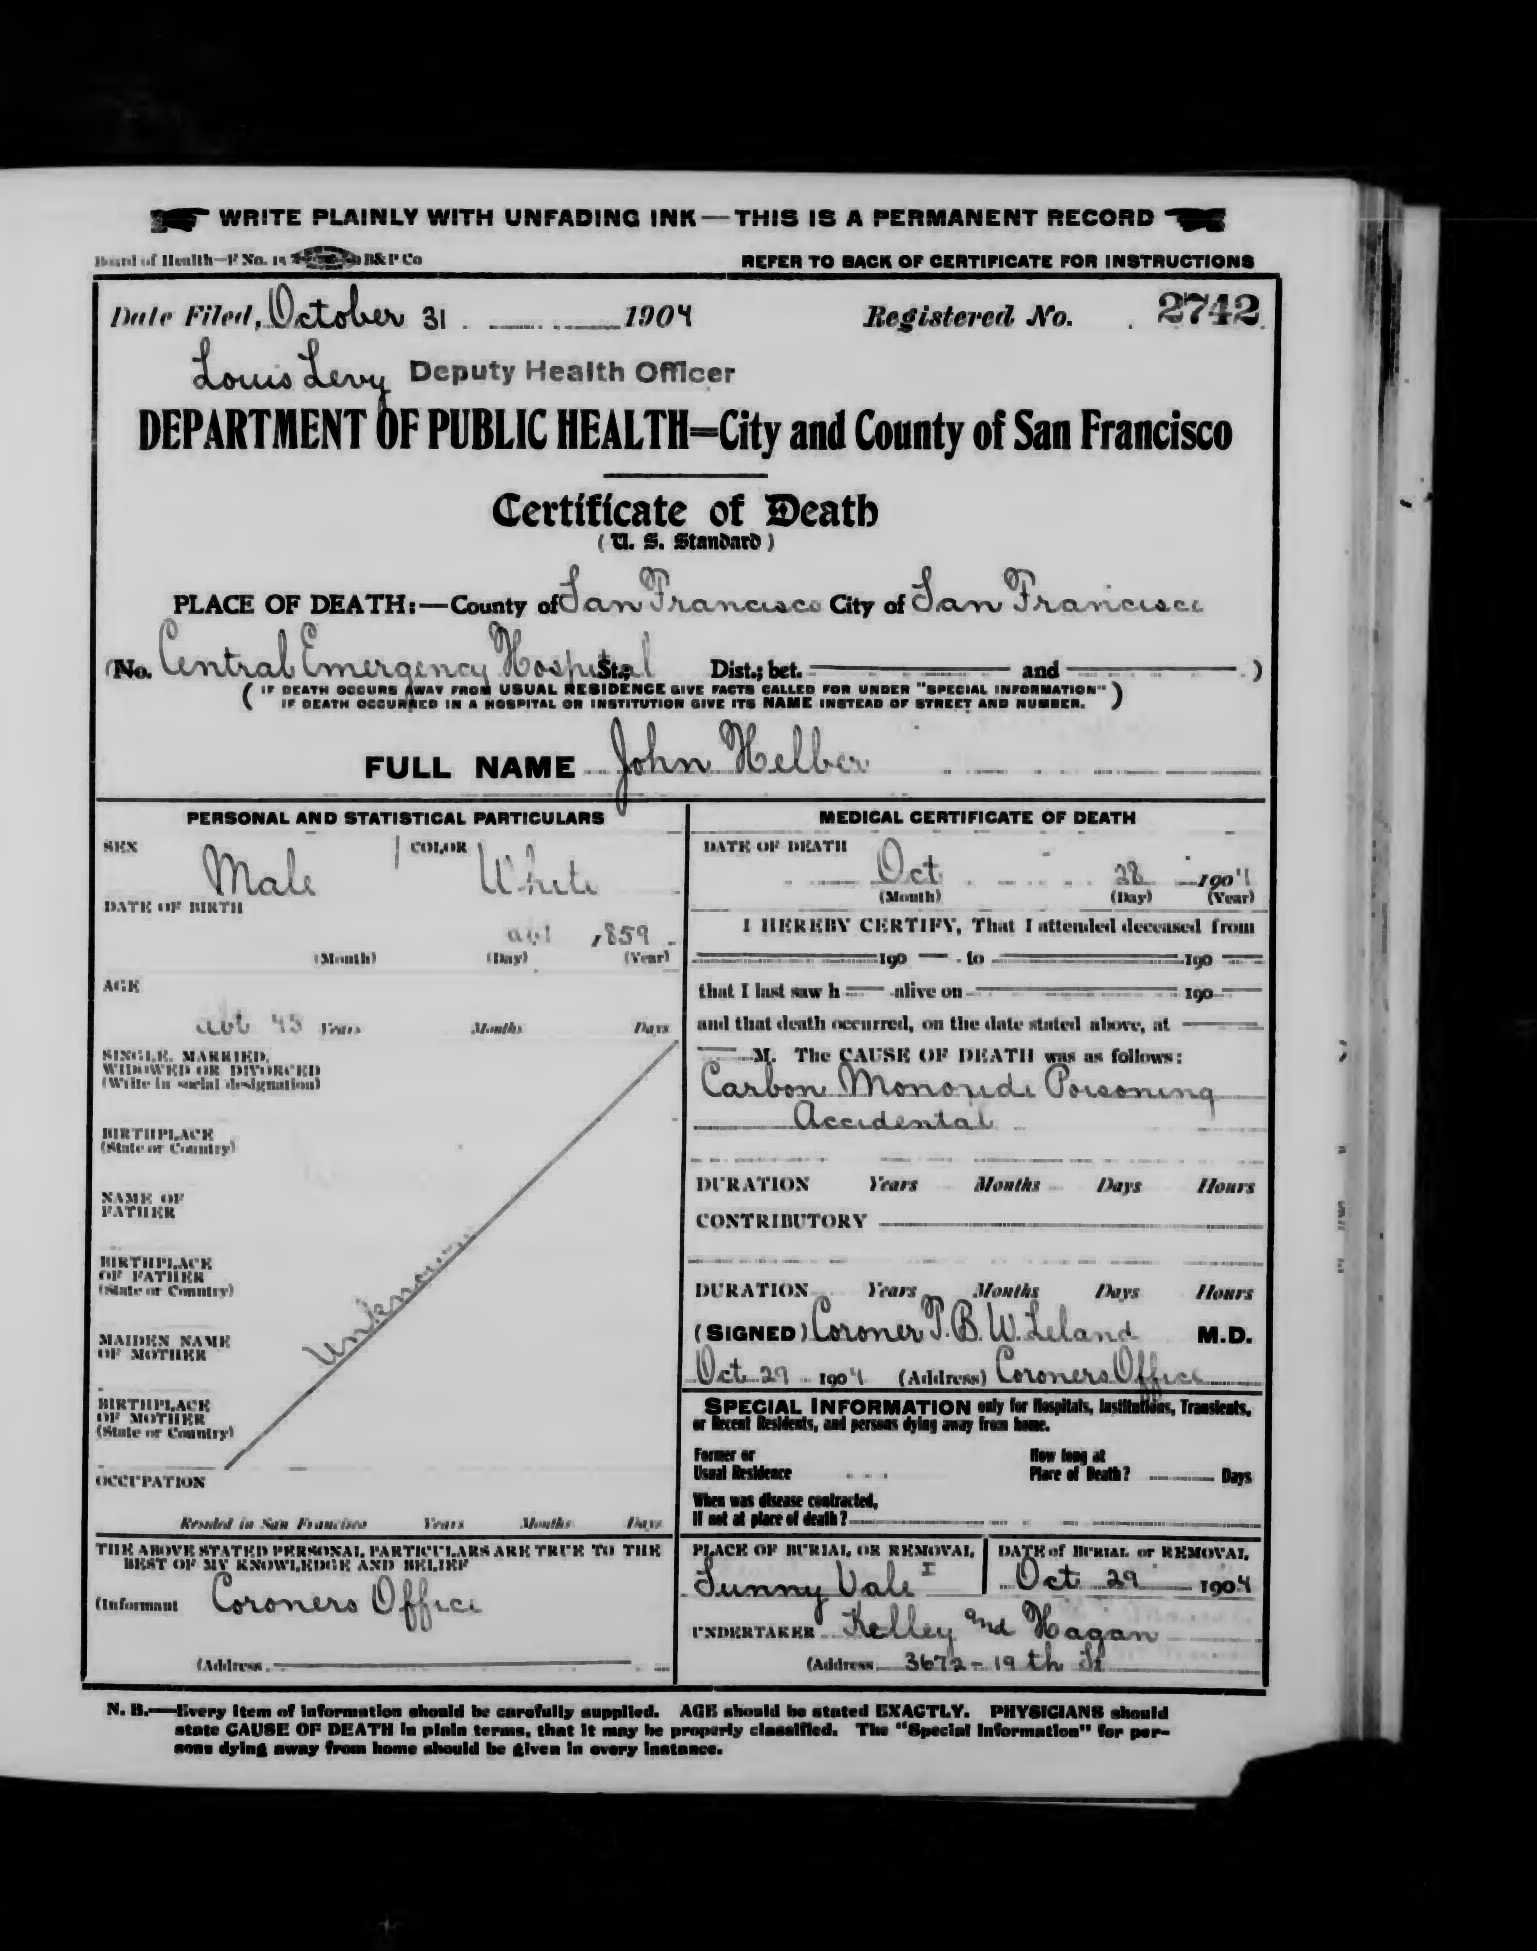 WRITE PLAINLY WITH UNFADING INK—THIS IS A PERMANENT RECORD
Board of Health—F No. 15 B&P Co
REFER TO BACK OF CERTIFICATE FOR INSTRUCTIONS
Date Filed, October 31 1904 Registered No. 2742
Louis Levy Deputy Health Officer
DEPARTMENT OF PUBLIC HEALTH=City and County of San Francisco
Certificate of Death
(U. S. Standard)
PLACE OF DEATH:—County of San Francisco City of San Francisco
(No. Central Emergency Hospital St.; Dist.; bet. and )
(IF DEATH OCCURS AWAY FROM USUAL RESIDENCE GIVE FACTS CALLED FOR UNDER "SPECIAL INFORMATION"
IF DEATH OCCURRED IN A HOSPITAL OR INSTITUTION GIVE ITS NAME INSTEAD OF STREET AND NUMBER.)
FULL NAME John Helber
PERSONAL AND STATISTICAL PARTICULARS
SEX Male COLOR White
DATE OF BIRTH
abt 1859
(Month) (Day) (Year)
AGE
abt 45 Years Months Days
SINGLE, MARRIED,
WIDOWED OR DIVORCED
(Write in social designation)
BIRTHPLACE
(State or Country)
NAME OF
FATHER
BIRTHPLACE
OF FATHER
(State or Country)
Unknown
MAIDEN NAME
OF MOTHER
BIRTHPLACE
OF MOTHER
(State or Country)
OCCUPATION
Resided in San Francisco Years Months Days
THE ABOVE STATED PERSONAL PARTICULARS ARE TRUE TO THE
BEST OF MY KNOWLEDGE AND BELIEF
(Informant Coroners Office
(Address
MEDICAL CERTIFICATE OF DEATH
DATE OF DEATH
Oct 28 1904
(Month) (Day) (Year)
I HEREBY CERTIFY, That I attended deceased from
190 to 190
that I last saw h alive on 190
and that death occurred, on the date stated above, at
M. The CAUSE OF DEATH was as follows:
Carbon Monoxide Poisoning
Accidental
DURATION Years Months Days Hours
CONTRIBUTORY
DURATION Years Months Days Hours
(SIGNED) Coroner T. B. W. Leland M.D.
Oct 29 1904 (Address) Coroners Office
SPECIAL INFORMATION only for Hospitals, Institutions, Transients,
or Recent Residents, and persons dying away from home.
Former or
Usual Residence
How long at
Place of Death? Days
When was disease contracted,
If not at place of death?
PLACE OF BURIAL OR REMOVAL
Sunny Vale I
DATE of BURIAL or REMOVAL
Oct 29 1904
UNDERTAKER Kelley and Hagan
(Address 3672-19th St
N. B.—Every item of information should be carefully supplied. AGE should be stated EXACTLY. PHYSICIANS should
state CAUSE OF DEATH in plain terms, that it may be properly classified. The "Special Information" for per-
sons dying away from home should be given in every instance.